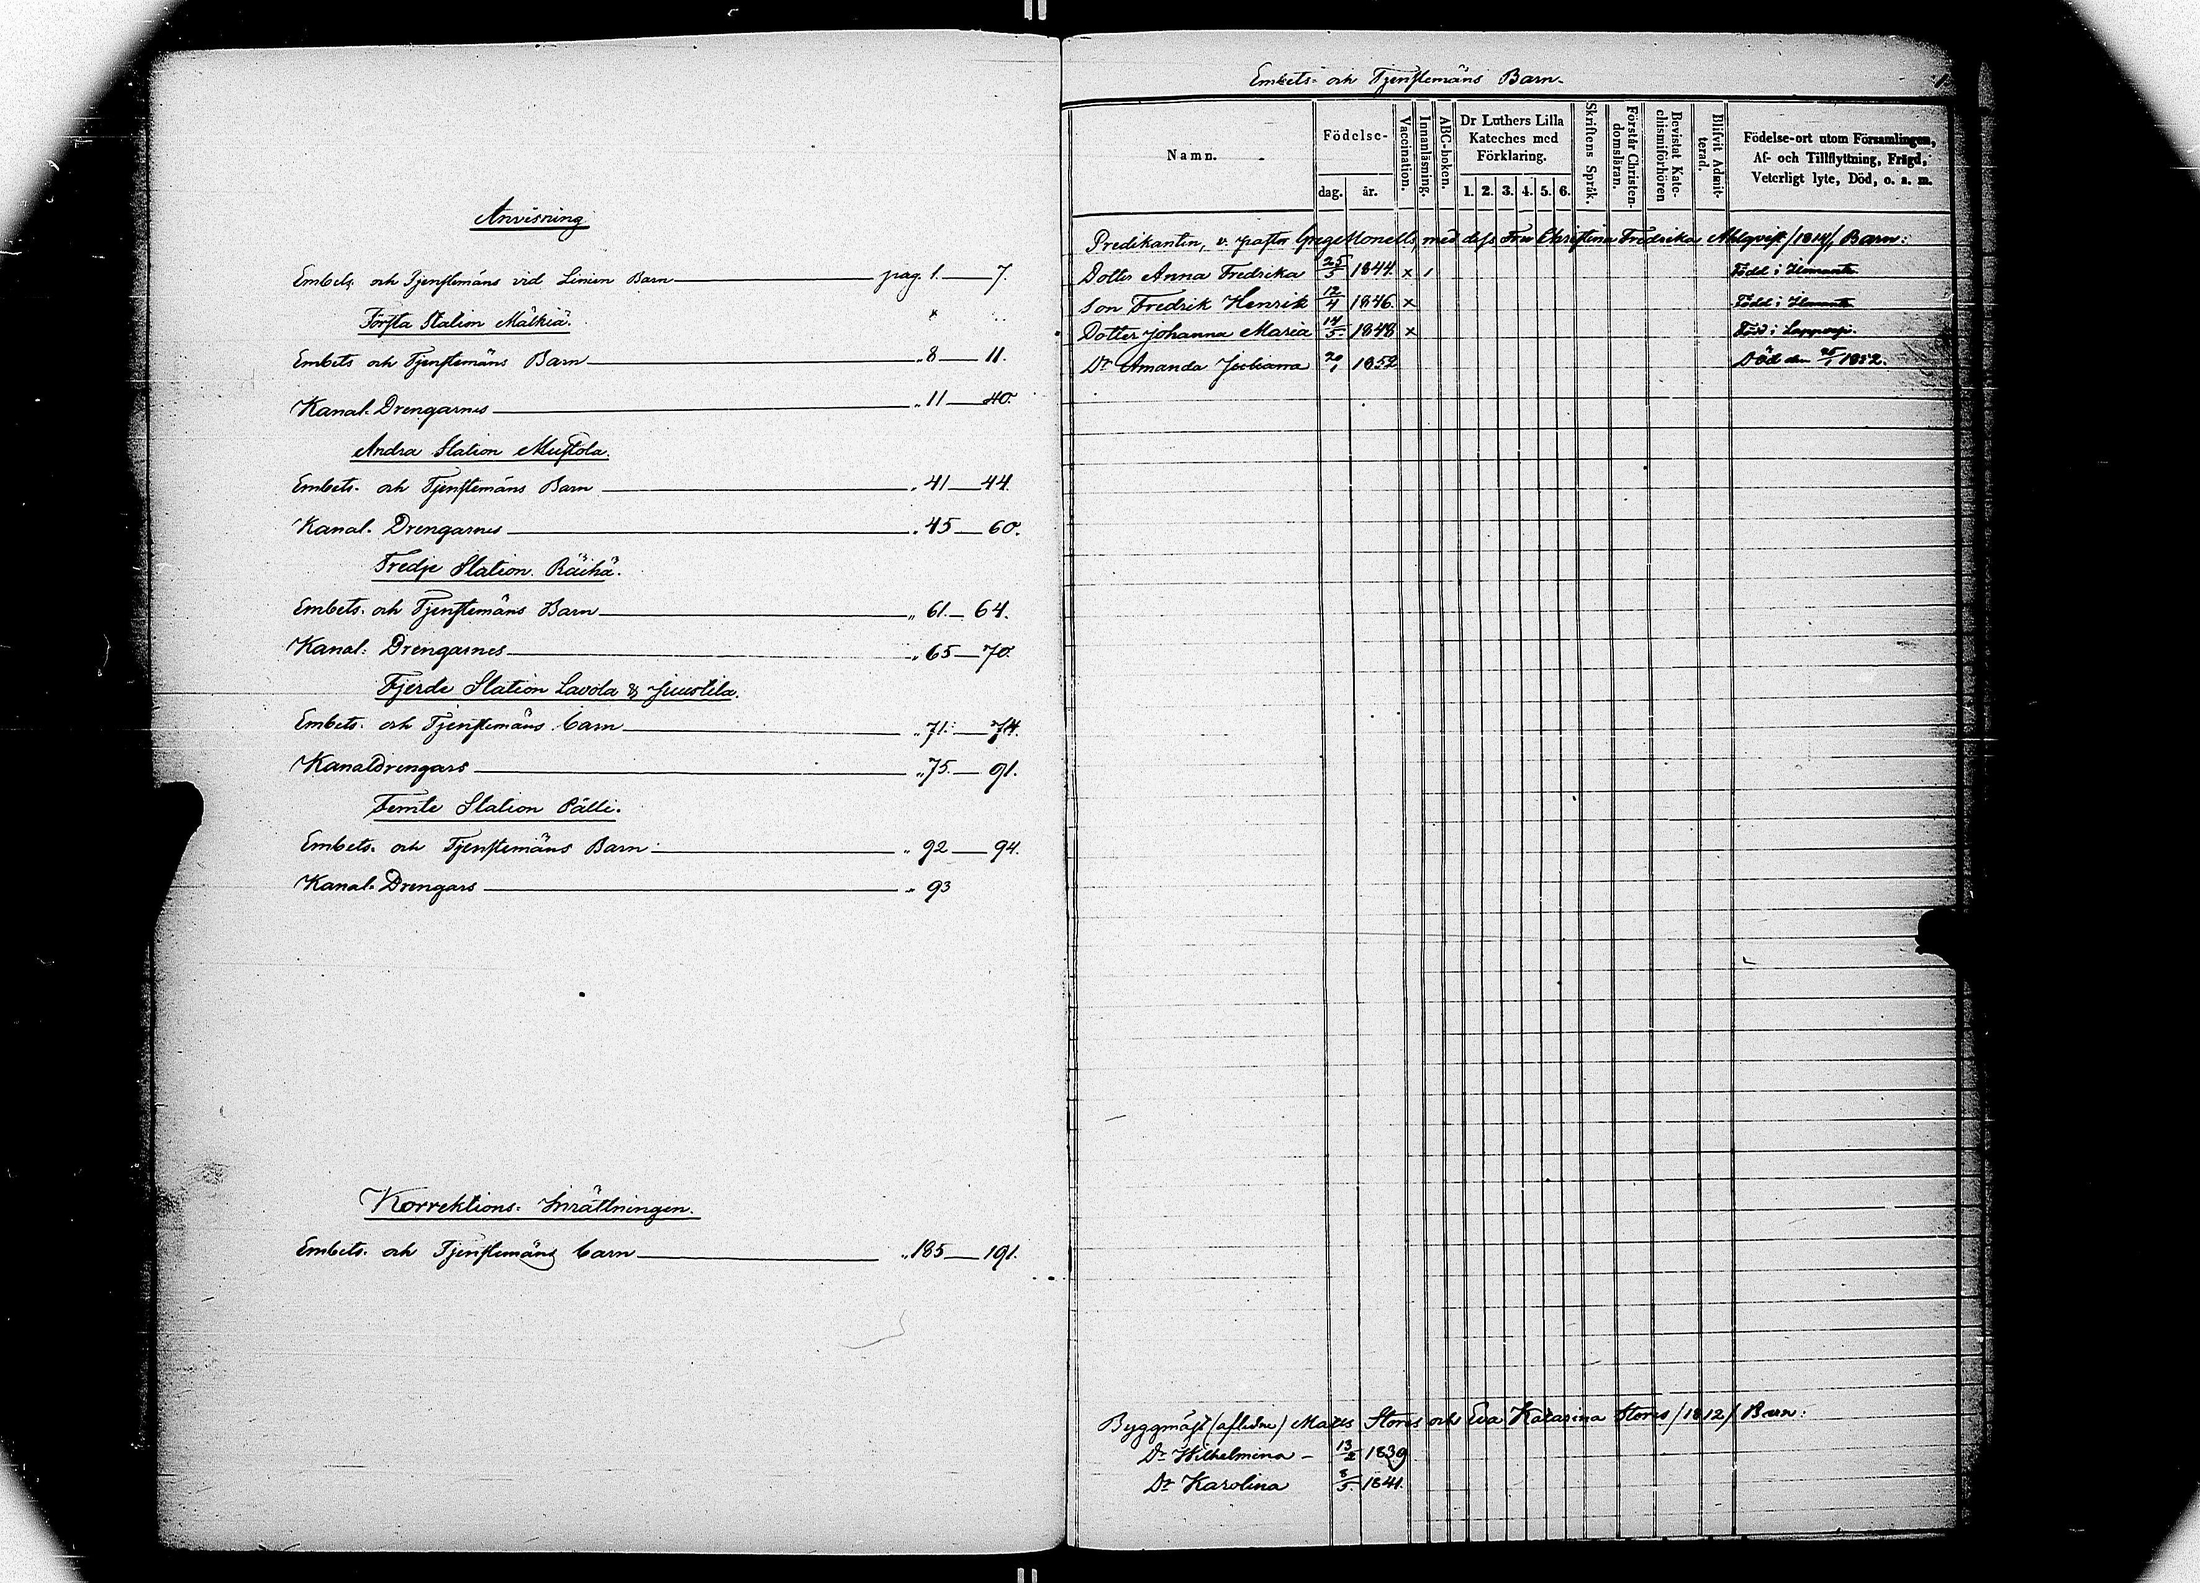 Anvisning
Embets och Tjenstemäns vid Linien Barn pag. 1. 7.
Första Station Mälkiä.
Embets och Tjenstemäns Barn „ 8 11.
Kanal-Drengarnes „ 11 40.
Andra Station Mustola.
Embets- och Tjenstemäns Barn „ 41 44.
Kanal-Drengarnes „ 45 60.
Tredje Station Räihä.
Embets- och Tjenstemäns Barn „ 61. 64.
Kanal-Drengarnes „ 65 70.
Fjerde Station Lavola & Juustila.
Embets- och Tjenstemäns barn „ 71. 74.
Kanaldrengars „ 75. 91.
Femte Station Pälli.
Embets- och Tjenstemäns Barn „ 92 94.
Kanal-Drengars „ 93
Korrektions-Inrättningen.
Embets- och Tjenstemäns barn „ 185 191.
Embets- och Tjenstemäns Barn. 1
Namn.
Födelse-
dag. år.
Vaccination.
Innanläsning.
ABC-boken.
Dr Luthers Lilla
Kateches med
Förklaring.
1. 2. 3. 4. 5. 6.
Skriftens Språk.
Förstår Christen-
domsläran.
Bevistat Kate-
chismiförhören
Blifvit Admit-
terad.
Födelse-ort utom Församlingen,
Af- och Tillflyttning, Frägd,
Veterligt lyte, Död, o. s. m.
Predikanten, v. pastor Greg. Monell, med dess Fru Christina Fredrika Ahlqvist /1814/, Barn:
Dotter Anna Fredrika 25/5 1844. x 1 Född i Ilomants
Son Fredrik Henrik 12/4 1846. x Född i Ilomants
Dotter Johanna Maria 14/5 1848 x Född i Lappvesi.
Dr Amanda Juliana 20/1 1852 Död den 25/1 1852.
Byggmäst (aflidne) Mates Stores och Eva Katarina Stores /1812/ Barn:
Dr Wilhelmina - 13/2 1839
Dr Karolina 8/5 1841.